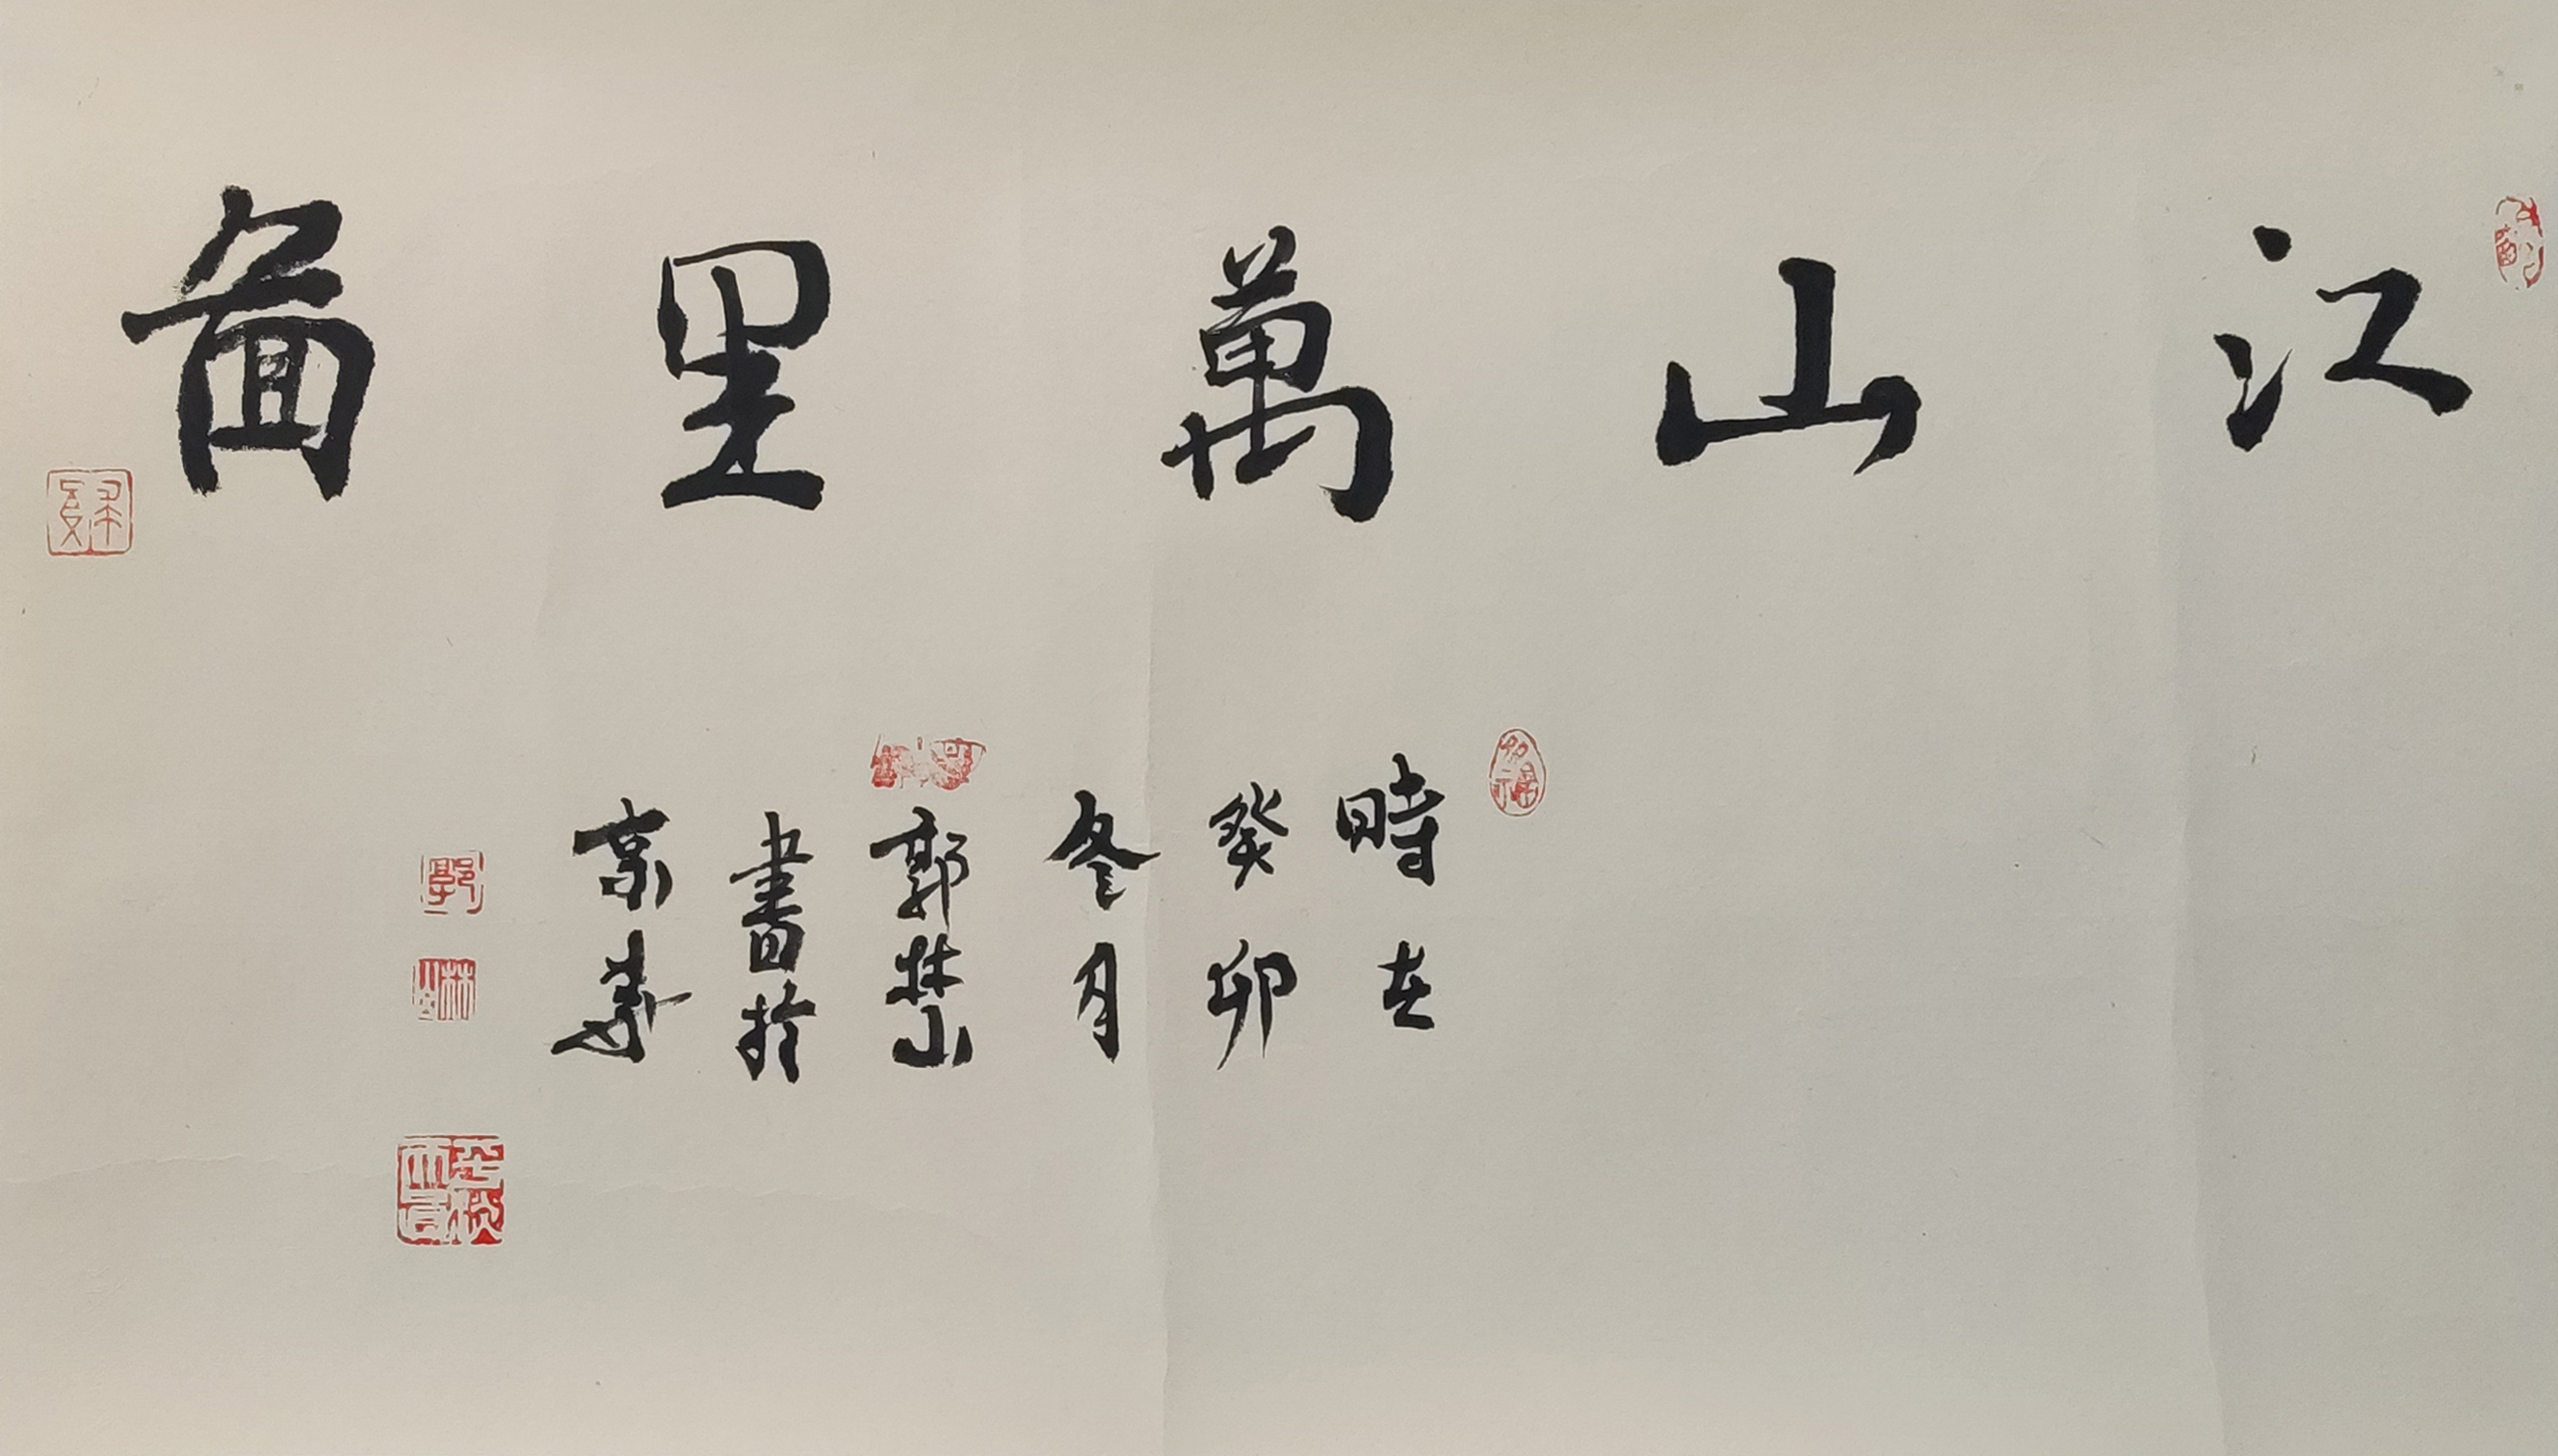 江山萬里啚
時在
癸卯
冬月
郭林山
書於
京華
郭
林山